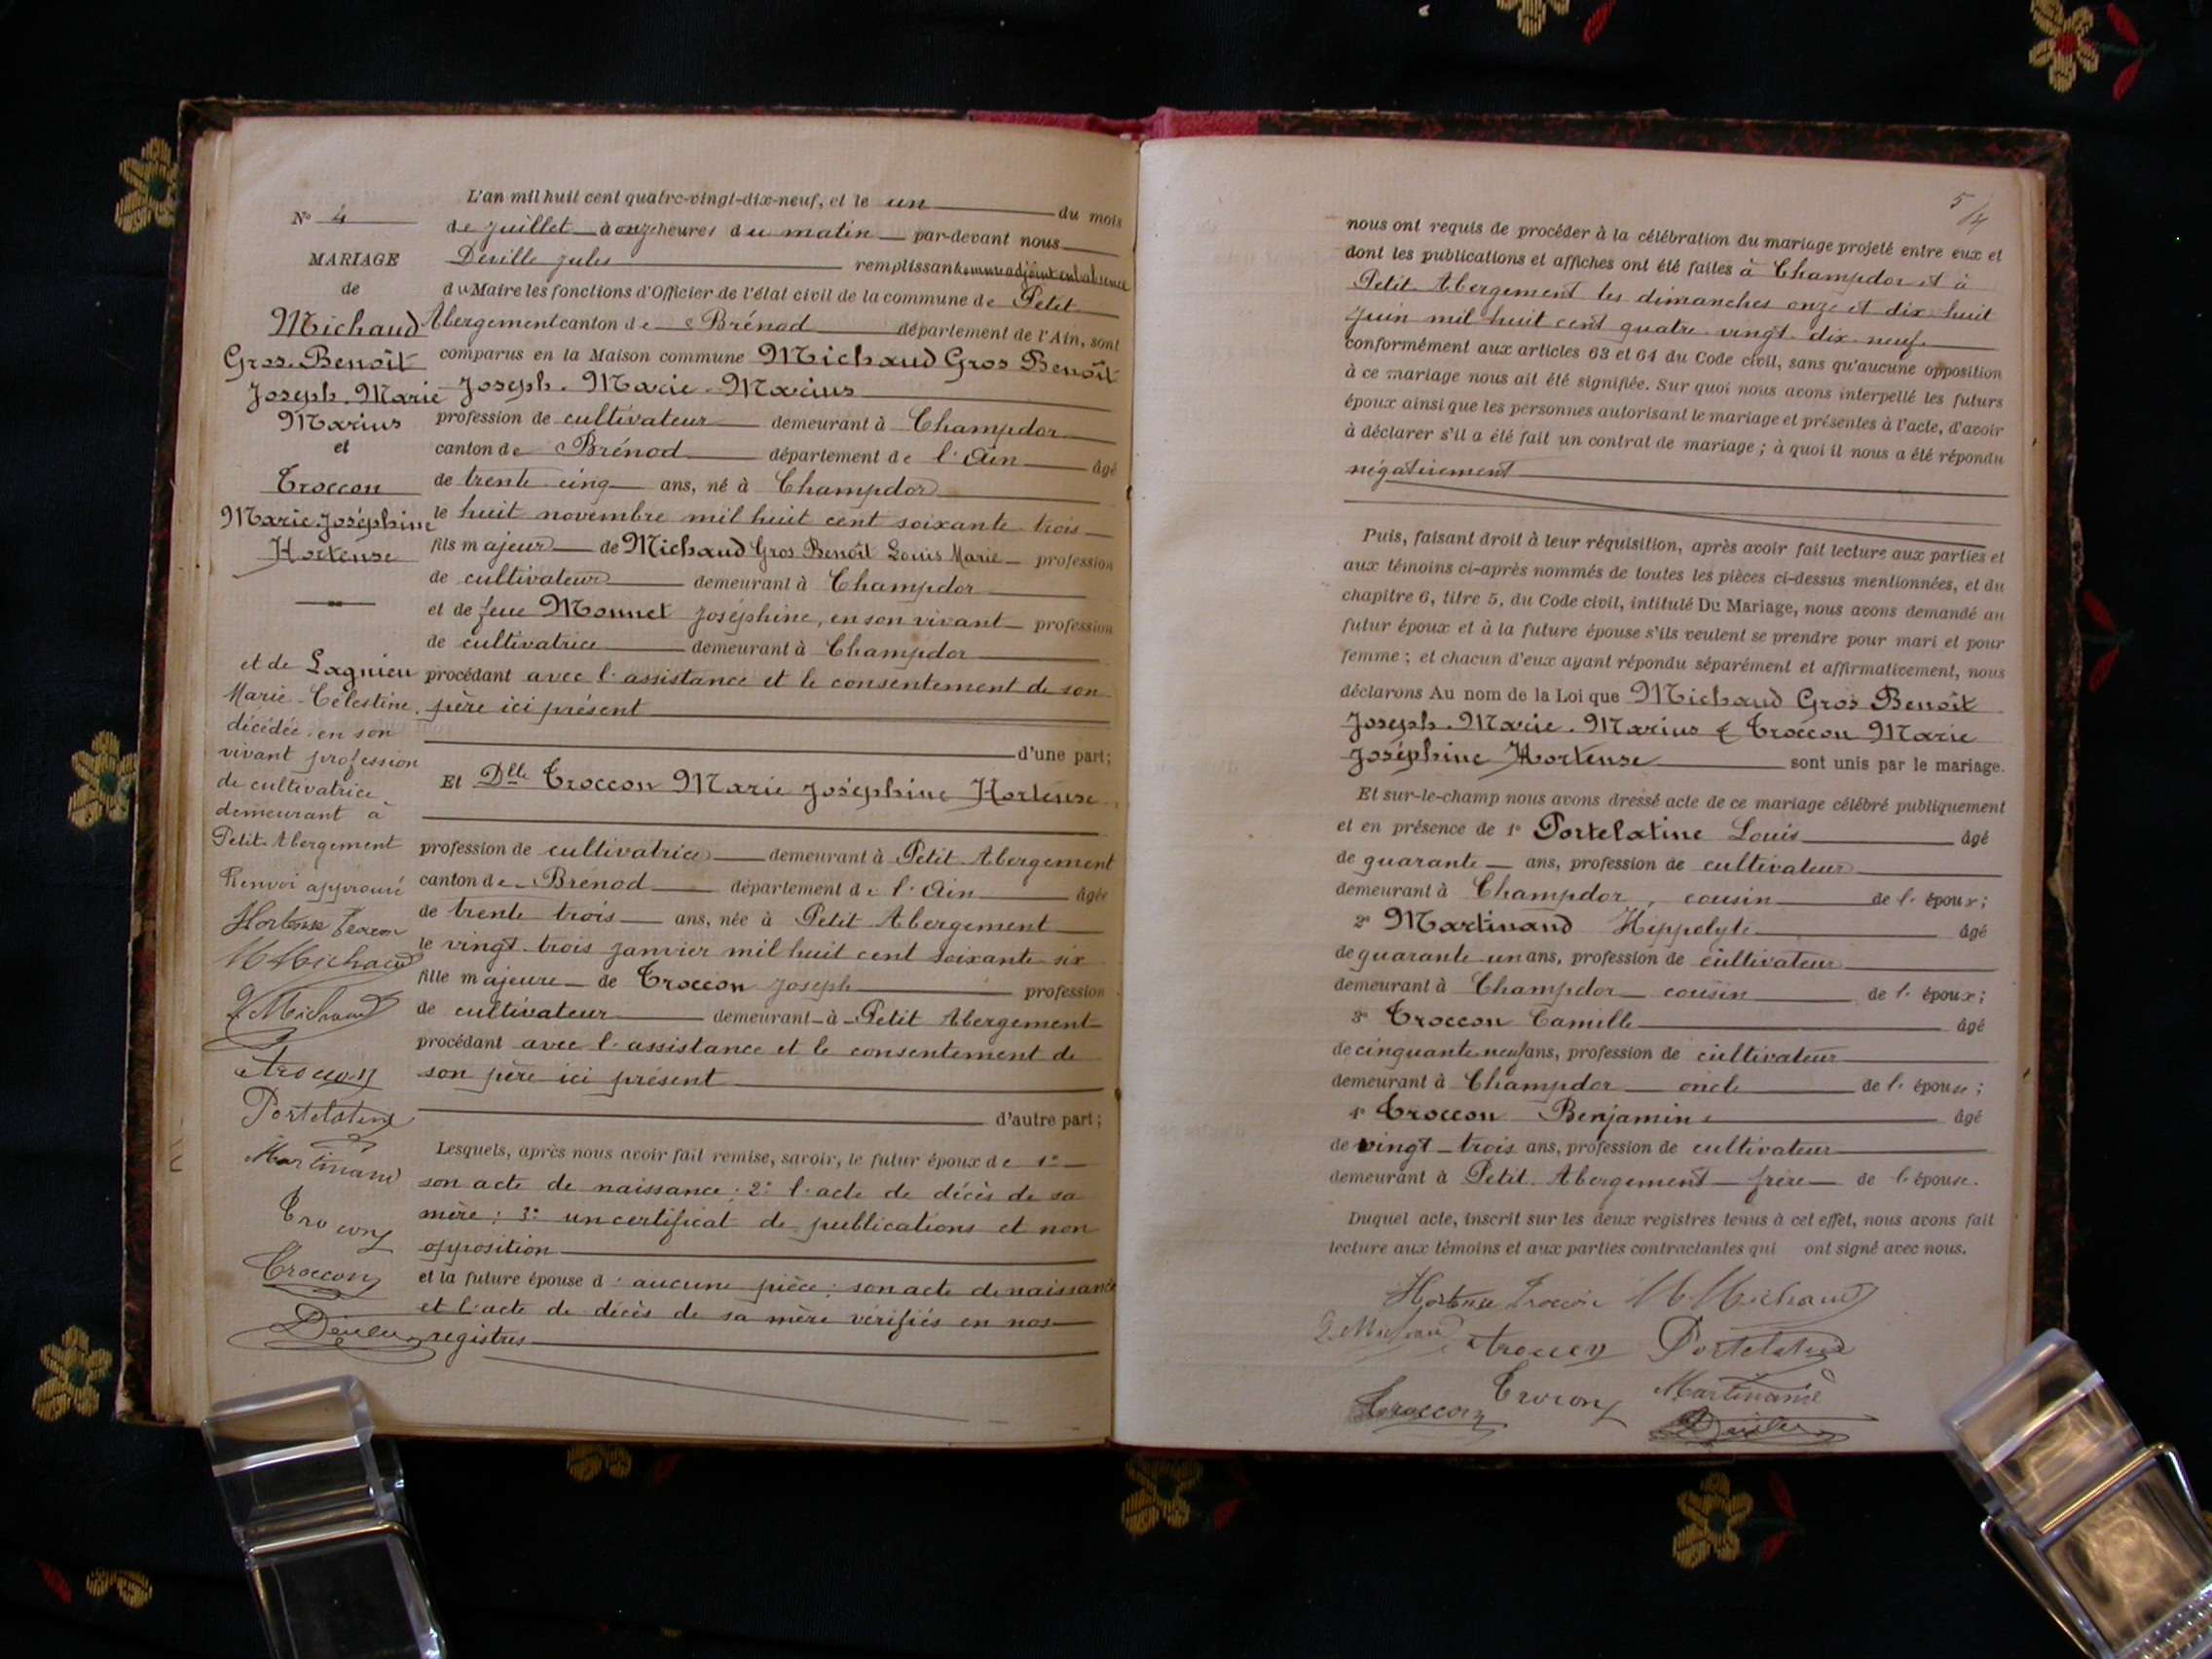 N° 4
MARIAGE
de
Michaud
Gros-Benoît
Joseph-Marie
Marius
et
Troccon
Marie Joséphine
Hortense
et de Lagnieu
Marie-Célestine,
décédée, en son
vivant profession
de cultivatrice
demeurant à
Petit-Abergement
Renvoi approuvé
Hortense Troccon
M Michaud
Michaud
Troccon
Portelatine
Martinand
Troccon
Troccon
L'an mil huit cent quatre-vingt-dix-neuf, et le un du mois
de juillet à onze heures du matin par-devant nous
Deville Jules remplissant comme adjoint en l'absence
du Maire les fonctions d'Officier de l'état civil de la commune de Petit
Abergement canton de Brénod département de l'Ain, sont
comparus en la Maison commune Michaud Gros Benoît
Joseph-Marie-Marius
profession de cultivateur demeurant à Champdor
canton de Brénod département de l'Ain âgé
de trente cinq ans, né à Champdor
le huit novembre mil huit cent soixante trois
fils majeur de Michaud Gros Benoît Louis Marie profession
de cultivateur demeurant à Champdor
et de feue Monnet Joséphine, en son vivant profession
de cultivatrice demeurant à Champdor
procédant avec l'assistance et le consentement de son
père ici présent
d'une part;
Et Dlle Troccon Marie Joséphine Hortense
profession de cultivatrice demeurant à Petit-Abergement
canton de Brénod département de l'Ain âgée
de trente trois ans, née à Petit Abergement
le vingt-trois janvier mil huit cent soixante six
fille majeure de Troccon Joseph profession
de cultivateur demeurant à Petit Abergement
procédant avec l'assistance et le consentement de
son père ici présent
d'autre part;
Lesquels, après nous avoir fait remise, savoir, le futur époux de 1°
son acte de naissance; 2° l'acte de décès de sa
mère; 3° un certificat de publications et non
opposition
et la future épouse d'aucune pièce; son acte de naissance
et l'acte de décès de sa mère vérifiés en nos
registres
5/4
nous ont requis de procéder à la célébration du mariage projeté entre eux et
dont les publications et affiches ont été faites à Champdor et à
Petit-Abergement les dimanches onze et dix-huit
juin mil huit cent quatre-vingt-dix-neuf
conformément aux articles 63 et 64 du Code civil, sans qu'aucune opposition
à ce mariage nous ait été signifiée. Sur quoi nous avons interpellé les futurs
époux ainsi que les personnes autorisant le mariage et présentes à l'acte, d'avoir
à déclarer s'il a été fait un contrat de mariage; à quoi il nous a été répondu
négativement
Puis, faisant droit à leur réquisition, après avoir fait lecture aux parties et
aux témoins ci-après nommés de toutes les pièces ci-dessus mentionnées, et du
chapitre 6, titre 5, du Code civil, intitulé Du Mariage, nous avons demandé au
futur époux et à la future épouse s'ils veulent se prendre pour mari et pour
femme; et chacun d'eux ayant répondu séparément et affirmativement, nous
déclarons Au nom de la Loi que Michaud Gros Benoît
Joseph-Marie-Marius & Troccon Marie
Joséphine Hortense sont unis par le mariage.
Et sur-le-champ nous avons dressé acte de ce mariage célébré publiquement
et en présence de 1° Portelatine Louis âgé
de quarante ans, profession de cultivateur
demeurant à Champdor, cousin de l'époux;
2° Martinand Hippolyte âgé
de quarante un ans, profession de cultivateur
demeurant à Champdor cousin de l'époux;
3° Troccon Camille âgé
de cinquante neuf ans, profession de cultivateur
demeurant à Champdor oncle de l'épouse;
4° Troccon Benjamin âgé
de vingt-trois ans, profession de cultivateur
demeurant à Petit-Abergement frère de l'épouse.
Duquel acte, inscrit sur les deux registres tenus à cet effet, nous avons fait
lecture aux témoins et aux parties contractantes qui ont signé avec nous.
Hortense Troccon M Michaud
Michaud Troccon Portelatine
Troccon Troccon Martinand